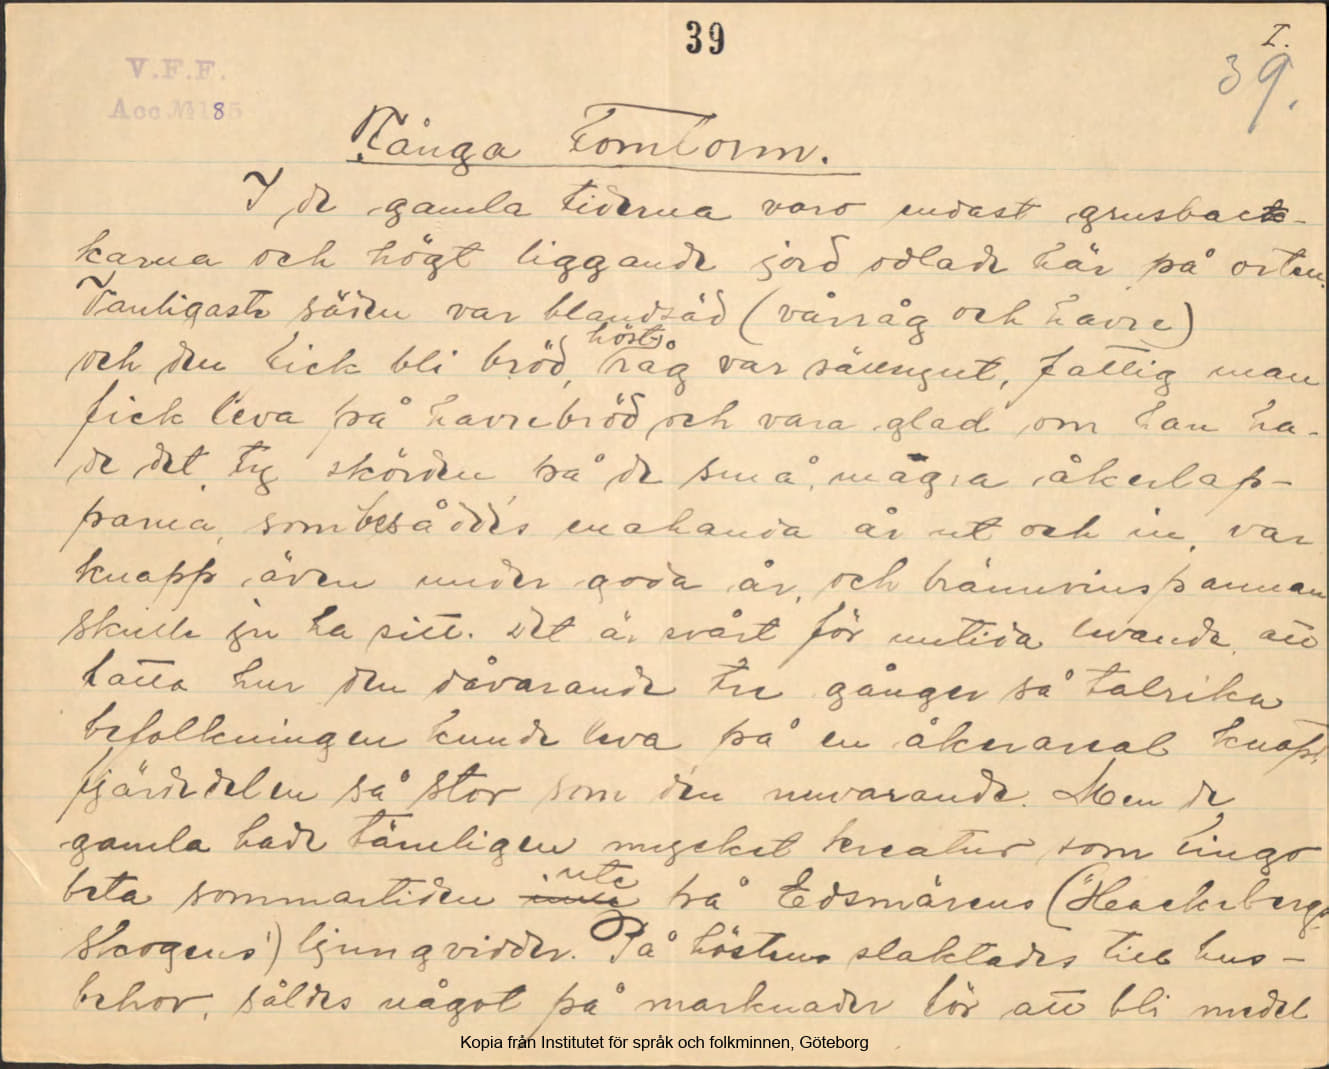 39
I.
39.
V.F.F.
Acc. № 185
Tånga Tomtorm.
I de gamla tiderna voro endast grusbac-
karna och högt liggande jord odlade här på orten.
Vanligaste säden var blandsäd (vårråg och havre)
och den fick bli bröd, höstråg var sällsynt, fattig man
fick leva på havrebröd och vara glad om han ha-
de det, ty skörden på de små, magra åkerlap-
parna, som besåddes enahanda år ut och in, var
knapp även under goda år, och brännvinspannan
skulle ju ha sitt. Det är svårt för nutida levande att
fatta hur den dåvarande tre gånger så talrika
befolkningen kunde leva på en åkerareal knapt
fjärdedelen så stor som den nuvarande. Men de
gamla hade tämligen mycket kreatur som fingo
beta sommartiden inne ute på Edsmärens ("Hackebergs-
skogens") ljungvidder. På höstens slaktades till hus-
behov, såldes något på marknader för att bli medel
Kopia från Institutet för språk och folkminnen, Göteborg